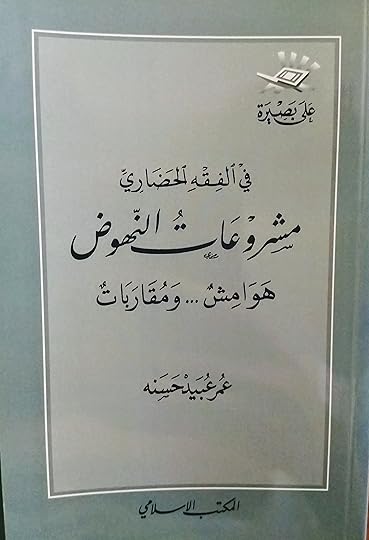 عَلَى بَصِيْرَة
فِي الفِقْهِ الحَضَارِيِّ
مَشْرُوعَاتُ النُّهُوض
هَوَامِشُ ... وَمُقَارَبَاتٌ
عُمَر عُبَيْد حَسَنِه
المكتب الاسلامي